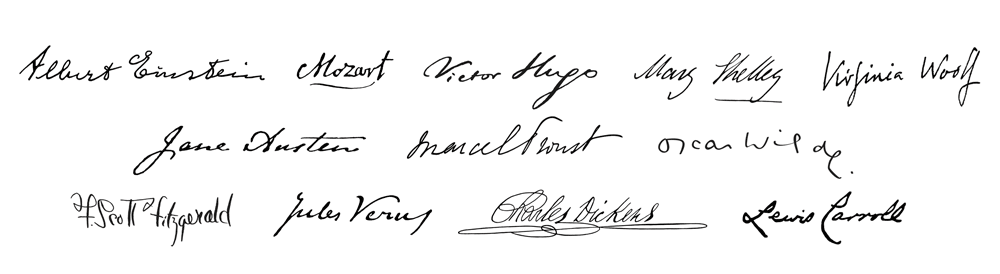 Albert Einstein Mozart Victor Hugo Mary Shelley Virginia Woolf
Jane Austen Marcel Proust Oscar Wilde.
F. Scott Fitzgerald Jules Verne Charles Dickens Lewis Carroll